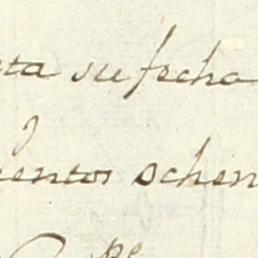 ta su fecha
ientos schen